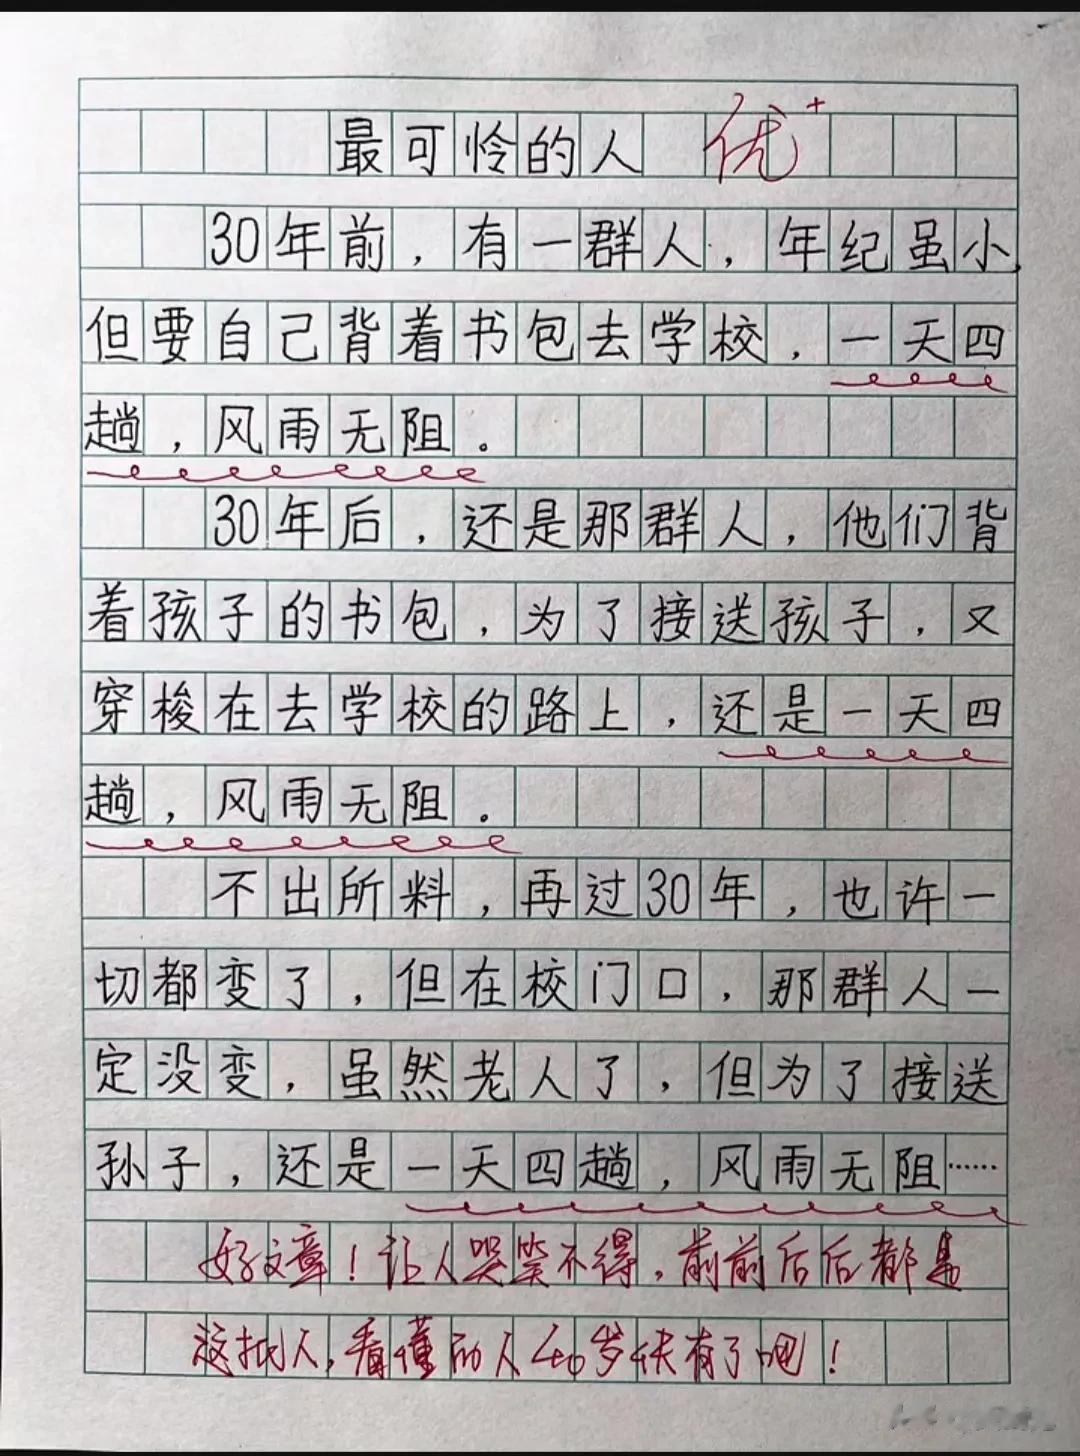 最可怜的人 优+
30年前，有一群人，年纪虽小，
但要自己背着书包去学校，一天四
趟，风雨无阻。
30年后，还是那群人，他们背
着孩子的书包，为了接送孩子，又
穿梭在去学校的路上，还是一天四
趟，风雨无阻。
不出所料，再过30年，也许一
切都变了，但在校门口，那群人一
定没变，虽然老人了，但为了接送
孙子，还是一天四趟，风雨无阻……
好文章！让人哭笑不得，前前后后都是
这批人，看懂的人40岁快有了吧！